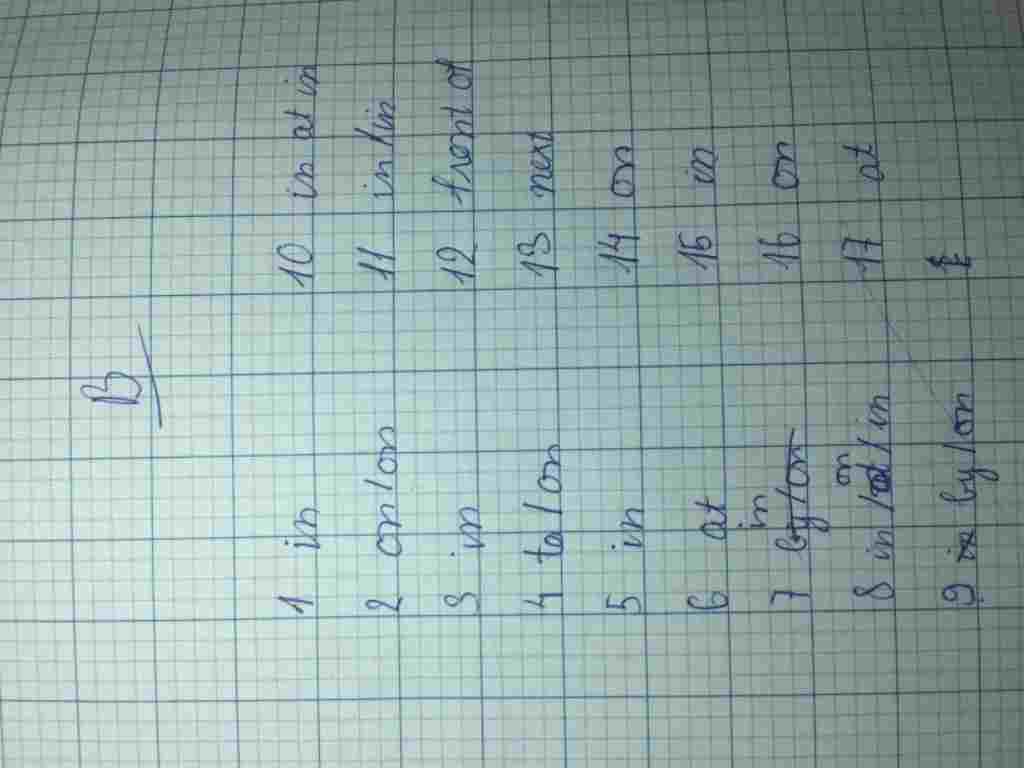 B
1 in
2 on/on
3 in
4 to/on
5 in
6 at
7 in by/on
8 in/on/in
9 by/on
10 in at in
11 in/in
12 front of
13 next
14 on
15 in
16 on
17 at